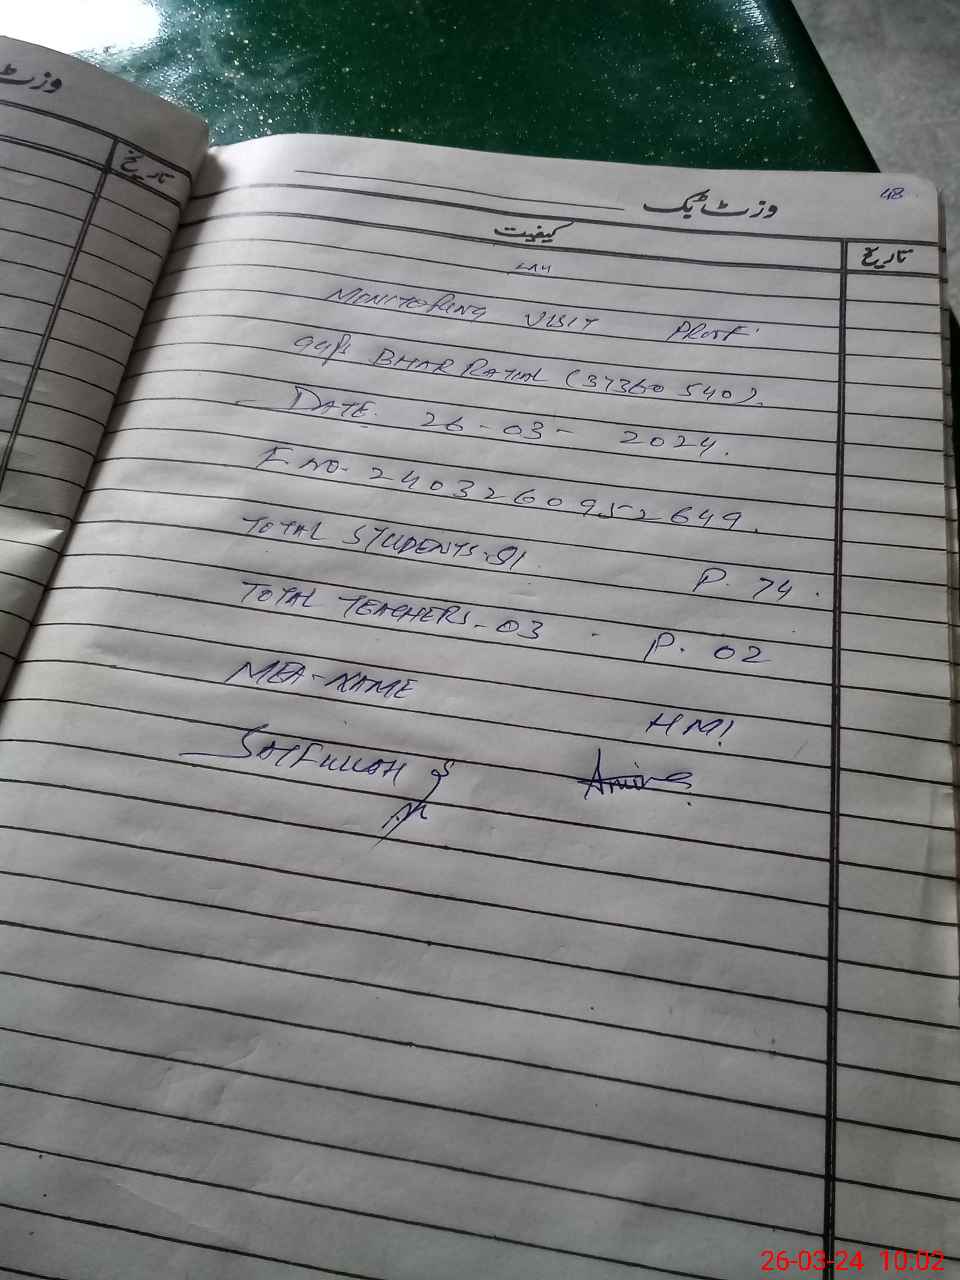 وزٹ
تاریخ
48
وزٹ بک
کیفیت
تاریخ
MONITORING VISIT PROOF
GGPS BHAR RATIAL (37360540).
DATE. 26-03-2024.
F.NO. 2403260952649.
TOTAL STUDENTS. 91 P. 74.
TOTAL TEACHERS-03 P. 02
MEA-NAME
HM!
SAIFULLAH
Amina
26-03-24 10:02